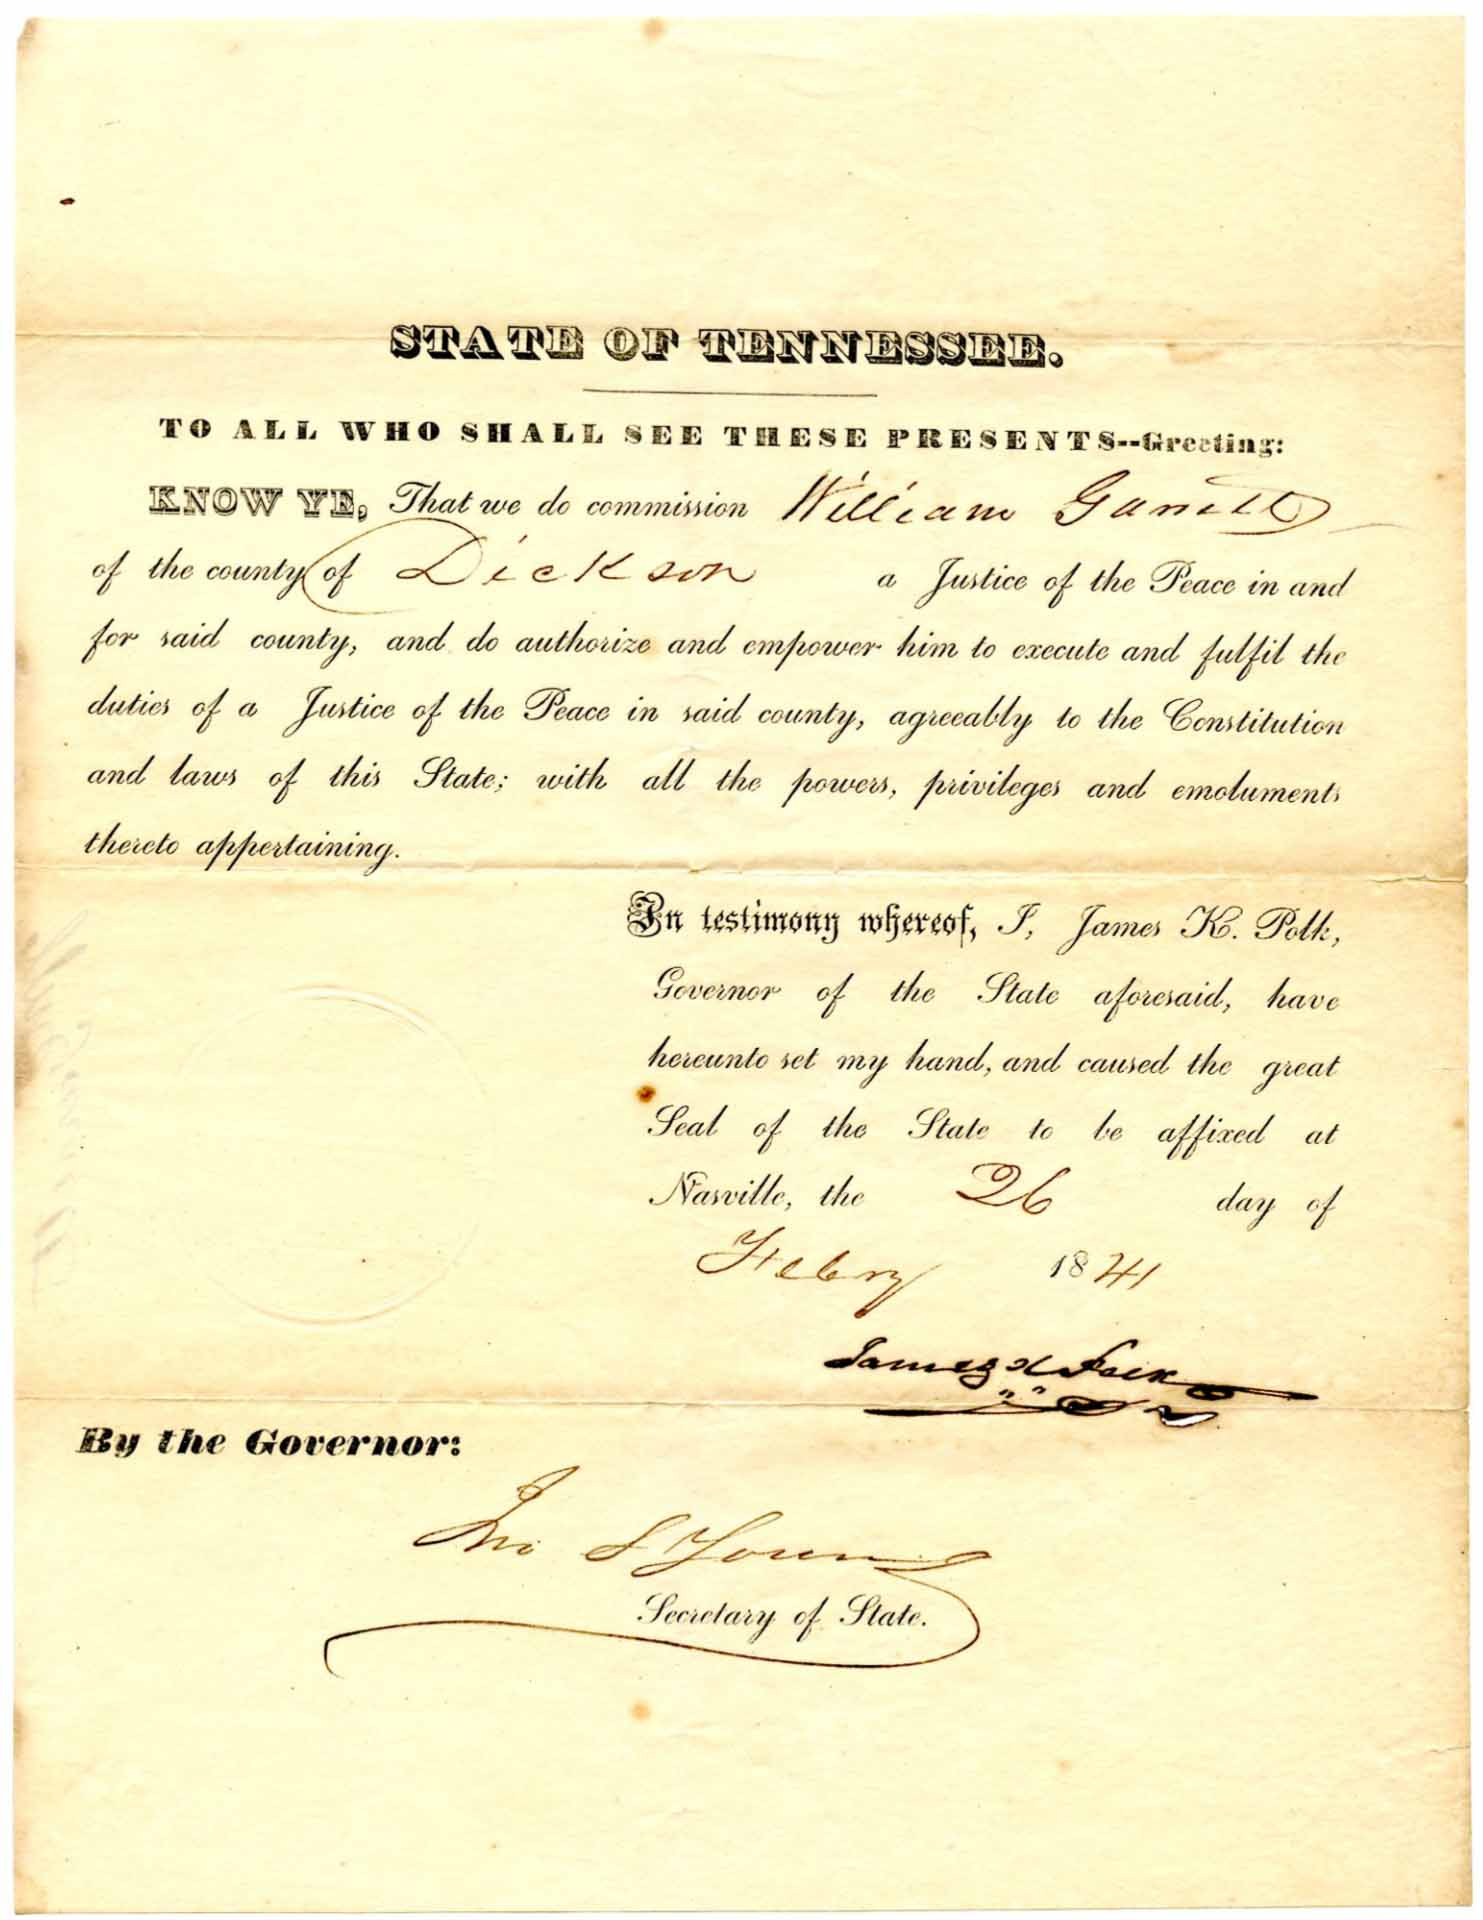 STATE OF TENNESSEE.
TO ALL WHO SHALL SEE THESE PRESENTS--Greeting:
KNOW YE, That we do commission William Garrett
of the county of Dickson a Justice of the Peace in and
for said county, and do authorize and empower him to execute and fulfil the
duties of a Justice of the Peace in said county, agreeably to the Constitution
and laws of this State; with all the powers, privileges and emoluments
thereto appertaining.
In testimony whereof, I, James K. Polk,
Governor of the State aforesaid, have
hereunto set my hand, and caused the great
Seal of the State to be affixed at
Nasville, the 26 day of
Febry 1841
James K Polk
By the Governor:
Jno S Young
Secretary of State.